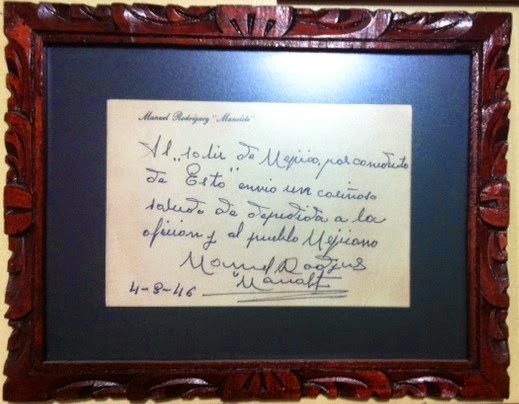 Manuel Rodríguez "Manolete"
Al salir de Mejico, por conducto
de "Esto" envio un cariñoso
saludo de despedida a la
aficion y al pueblo Mejicano
Manuel Rodríguez
"Manolete"
4-8-46